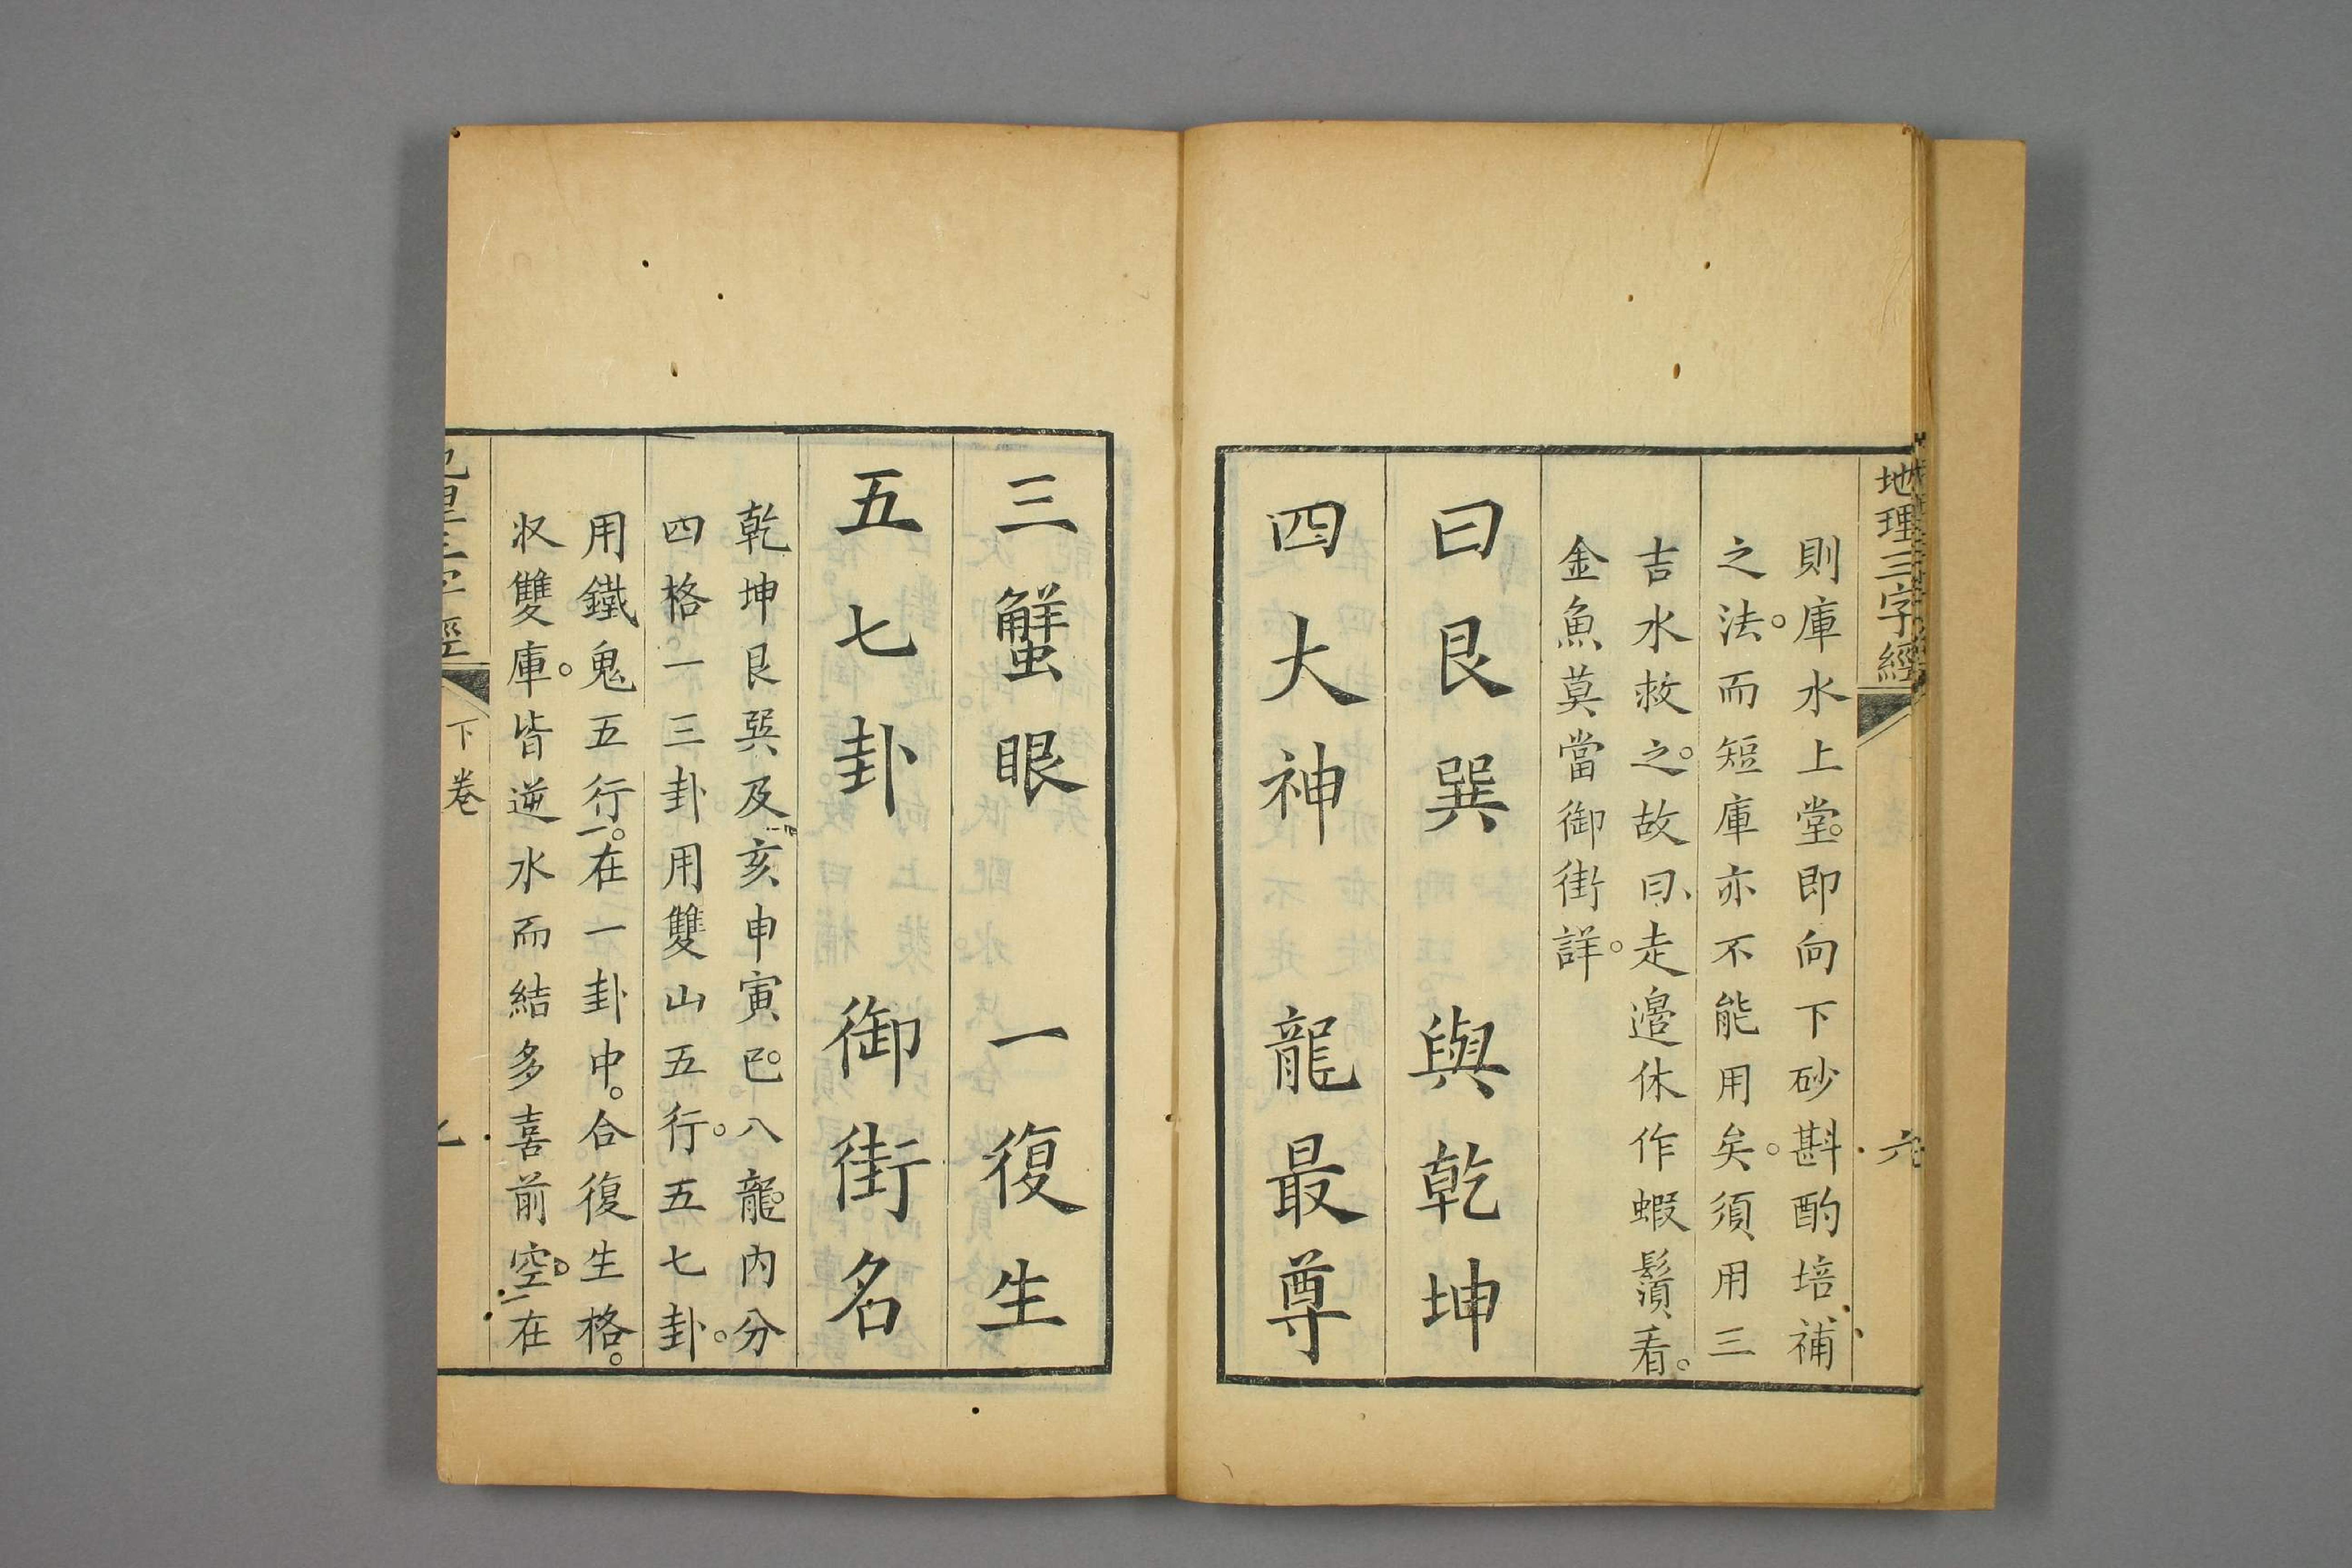 地理三字經
六
則庫水上堂。即向下砂斟酌培補
之法。而短庫亦不能用矣。須用三
吉水救之。故曰、走邉休作蝦鬚看。
金魚莫當御街詳。
曰艮巽 與乾坤
四大神 龍最尊
三蟹眼 一復生
五七卦 御街名
乾坤艮巽及亥申寅巳。八龍。内分
四格。一三卦用雙山五行。五七卦。
用鐵鬼五行。在一卦中。合復生格。
収雙庫。皆逆水而結多喜前空。在
地理三字經
下卷
七